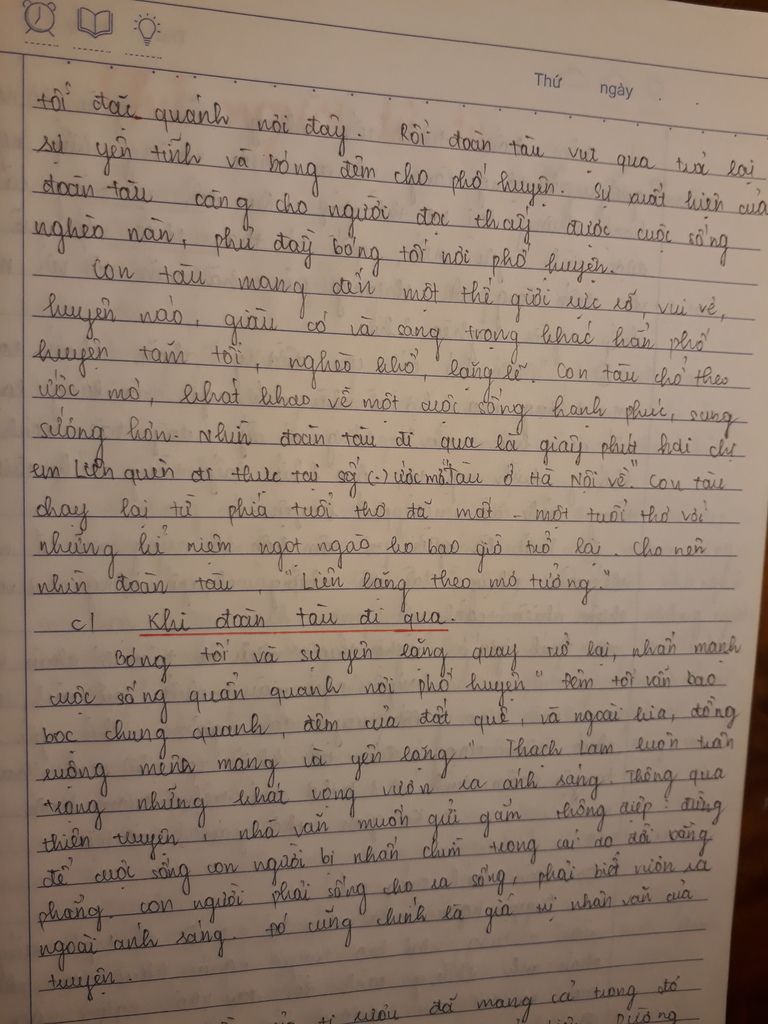 Thứ ngày
tối đặc quánh nơi đây. Rồi đoàn tàu vụt qua trả lại
sự yên tĩnh và bóng đêm cho phố huyện. Sự xuất hiện của
đoàn tàu càng cho người đọc thấy được cuộc sống
nghèo nàn, phủ đầy bóng tối nơi phố huyện.
Con tàu mang đến một thế giới rực rỡ, vui vẻ,
huyên náo, giàu có và sang trọng khác hẳn phố
huyện tăm tối, nghèo khổ, lặng lẽ. Con tàu chở theo
ước mơ, khát khao về một cuộc sống hạnh phúc, sung
sướng hơn. Nhìn đoàn tàu đi qua là giây phút hai chị
em Liên quên đi thực tại sống (.) ước mơ "Tàu ở Hà Nội về". Con tàu
chạy lại từ phía tuổi thơ đã mất - một tuổi thơ với
những kỉ niệm ngọt ngào ko bao giờ trở lại. Cho nên
nhìn đoàn tàu, "Liên lặng theo mơ tưởng."
c/ Khi đoàn tàu đi qua.
Bóng tối và sự yên lặng quay trở lại, nhấn mạnh
cuộc sống quẩn quanh nơi phố huyện "Đêm tối vẫn bao
bọc chung quanh, đêm của đất quê, và ngoài kia, đồng
ruộng mênh mang và yên lặng." Thạch Lam luôn trân
trọng những khát vọng vươn ra ánh sáng. Thông qua
thiên truyện, nhà văn muốn gửi gắm thông điệp: đừng
để cuộc sống con người bị nhấn chìm trong cái ao đời bằng
phẳng. Con người phải sống cho ra sống, phải biết vươn ra
ngoài ánh sáng. Đó cũng chính là giá trị nhân văn của
truyện.
rượu đã mang cả trong đó